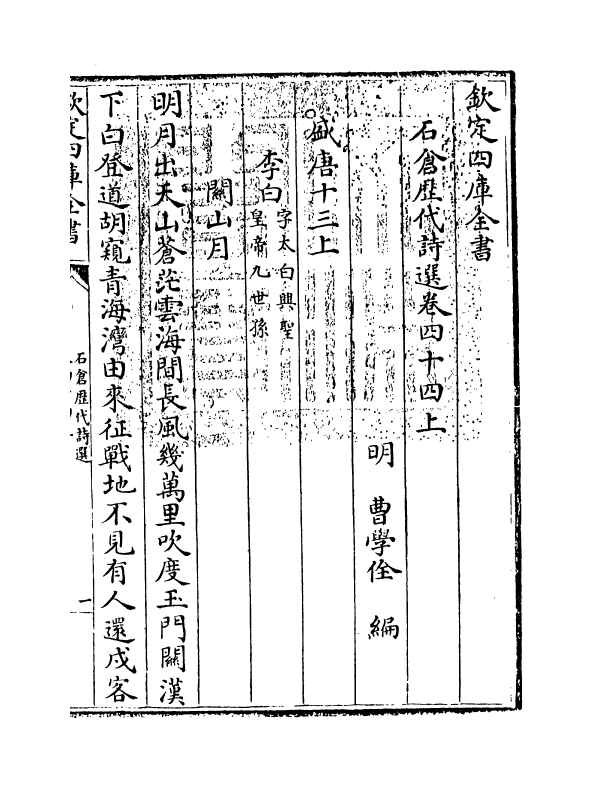 欽定四庫全書
石倉歴代詩選卷四十四上
明 曹學佺 編
盛唐十三上
李白字太白興聖
皇帝九世孫
關山月
明月出天山蒼茫雲海間長風幾萬里吹度玉門關漢
下白登道胡窺青海灣由來征戰地不見有人還戍客
欽定四庫全書
石倉歴代詩選
一